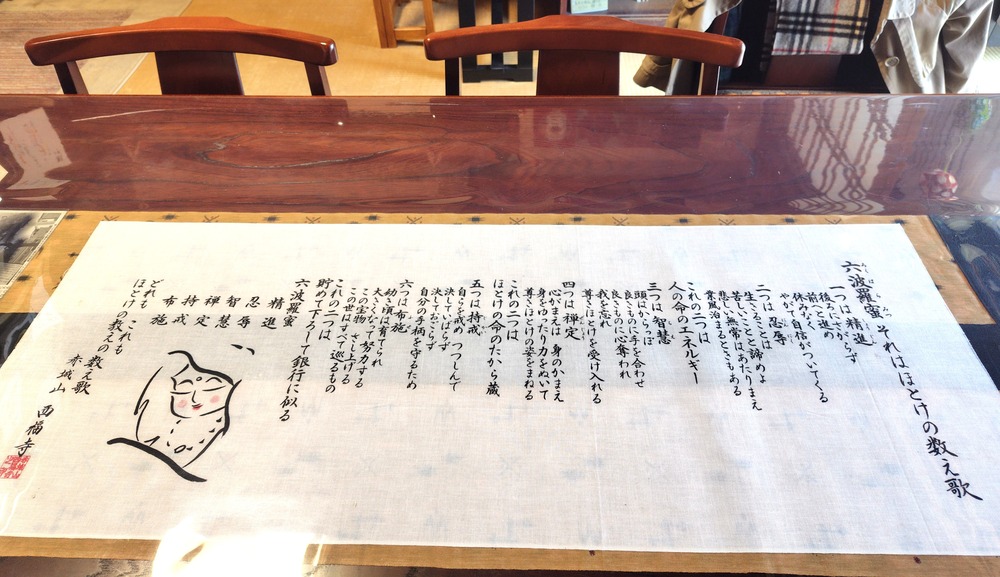 六波羅蜜 それはほとけの数え歌
一つは 精進
後みさからず
後へと進め
休みなく
やがて自信がついてくる
二つは 忍辱
生きることと諦めよ
苦しいことあたりまえ
悲しい無常はあたりまえ
業風泊まるときもある
これの二つは
人の命のエネルギー
三つは 智慧
頭はからっぽ
良きものに手を合わせ
良きものに心奪われ
我を忘れ
尊きほとけを受け入れる
四つは 禅定
心がまえは 身のかまえ
身をゆったり力をぬいて
尊きほとけの姿をまねる
これの二つは
ほとけの命のたから蔵
五つは 持戒
自らを戒め つつしんで
決してやらず
決しておごらず
自分の手柄を守るため
六つは 布施
幼き頃は育てられ
大きくなって 努力する
この宝物 さし上げる
この世はすべて巡るもの
これの二つは
貯めて下ろして銀行に似る
六波羅蜜
精進
忍辱
智慧
禅定
持戒
布施
どれも これも
ほとけの教えの 数え歌
赤城山 西福寺